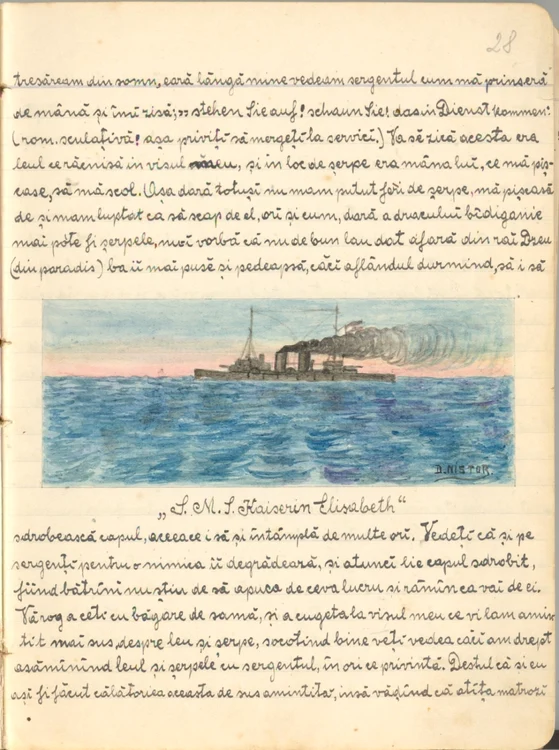 28
tresăream din somn, eară lângă mine vedeam sergentul cum mă prinseră
de mână și îmi zisă; „stehen Sie auf! schaun Sie! das in Dienst kommen."
(rom. sculativă! așa priviți să mergeți la servici.) Va să zică acesta era
leul ce răcnisă in visul meu, și in loc de șerpe era mâna lui, ce mă piș-
case, să mă scol. Așa dară totuși nu mam putut feri de șerpe, mă pișcasă
de și mam luptat ca să scap de el, ori și cum, dară a dracului bidiganie
mai pote fi șerpele, nui vorbă că nu de bun lau dat afară din rai Dzeu
(din paradis) ba ii mai pusă și pedeapsă, căci aflândul durmiind, să i să
D. NISTOR.
„S. M. S. Kaiserin Elisabeth"
sdrobească capul, aceeace i să și intâmplă de multe ori. Vedeți că și pe
sergenți pentru o nimica ii degrădeară, și atunci lie capul sdrobit,
fiind bătrini nu știu de să apuca de ceva lucru si rămîn ca vai de ei.
Vărog a ceti cu băgare de samă, și a cugeta la visul meu ce vi lam amin-
tit mai sus, despre leu și șerpe, socotind bine veți vedea căci am drept
asăminind leul și serpele cu sergentul, in ori ce privintă. Destul că si eu
ași fi făcut călătoriea aceasta de sus amintita, insă văzind că atița matrozi